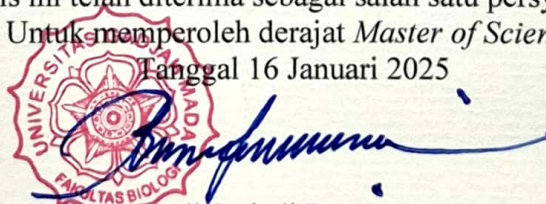 is ini telah diterima sebagai salah satu persy
Untuk memperoleh derajat Master of Scien
Tanggal 16 Januari 2025
UNIVERSITAS GADJAH MADA
FAKULTAS BIOLOGI